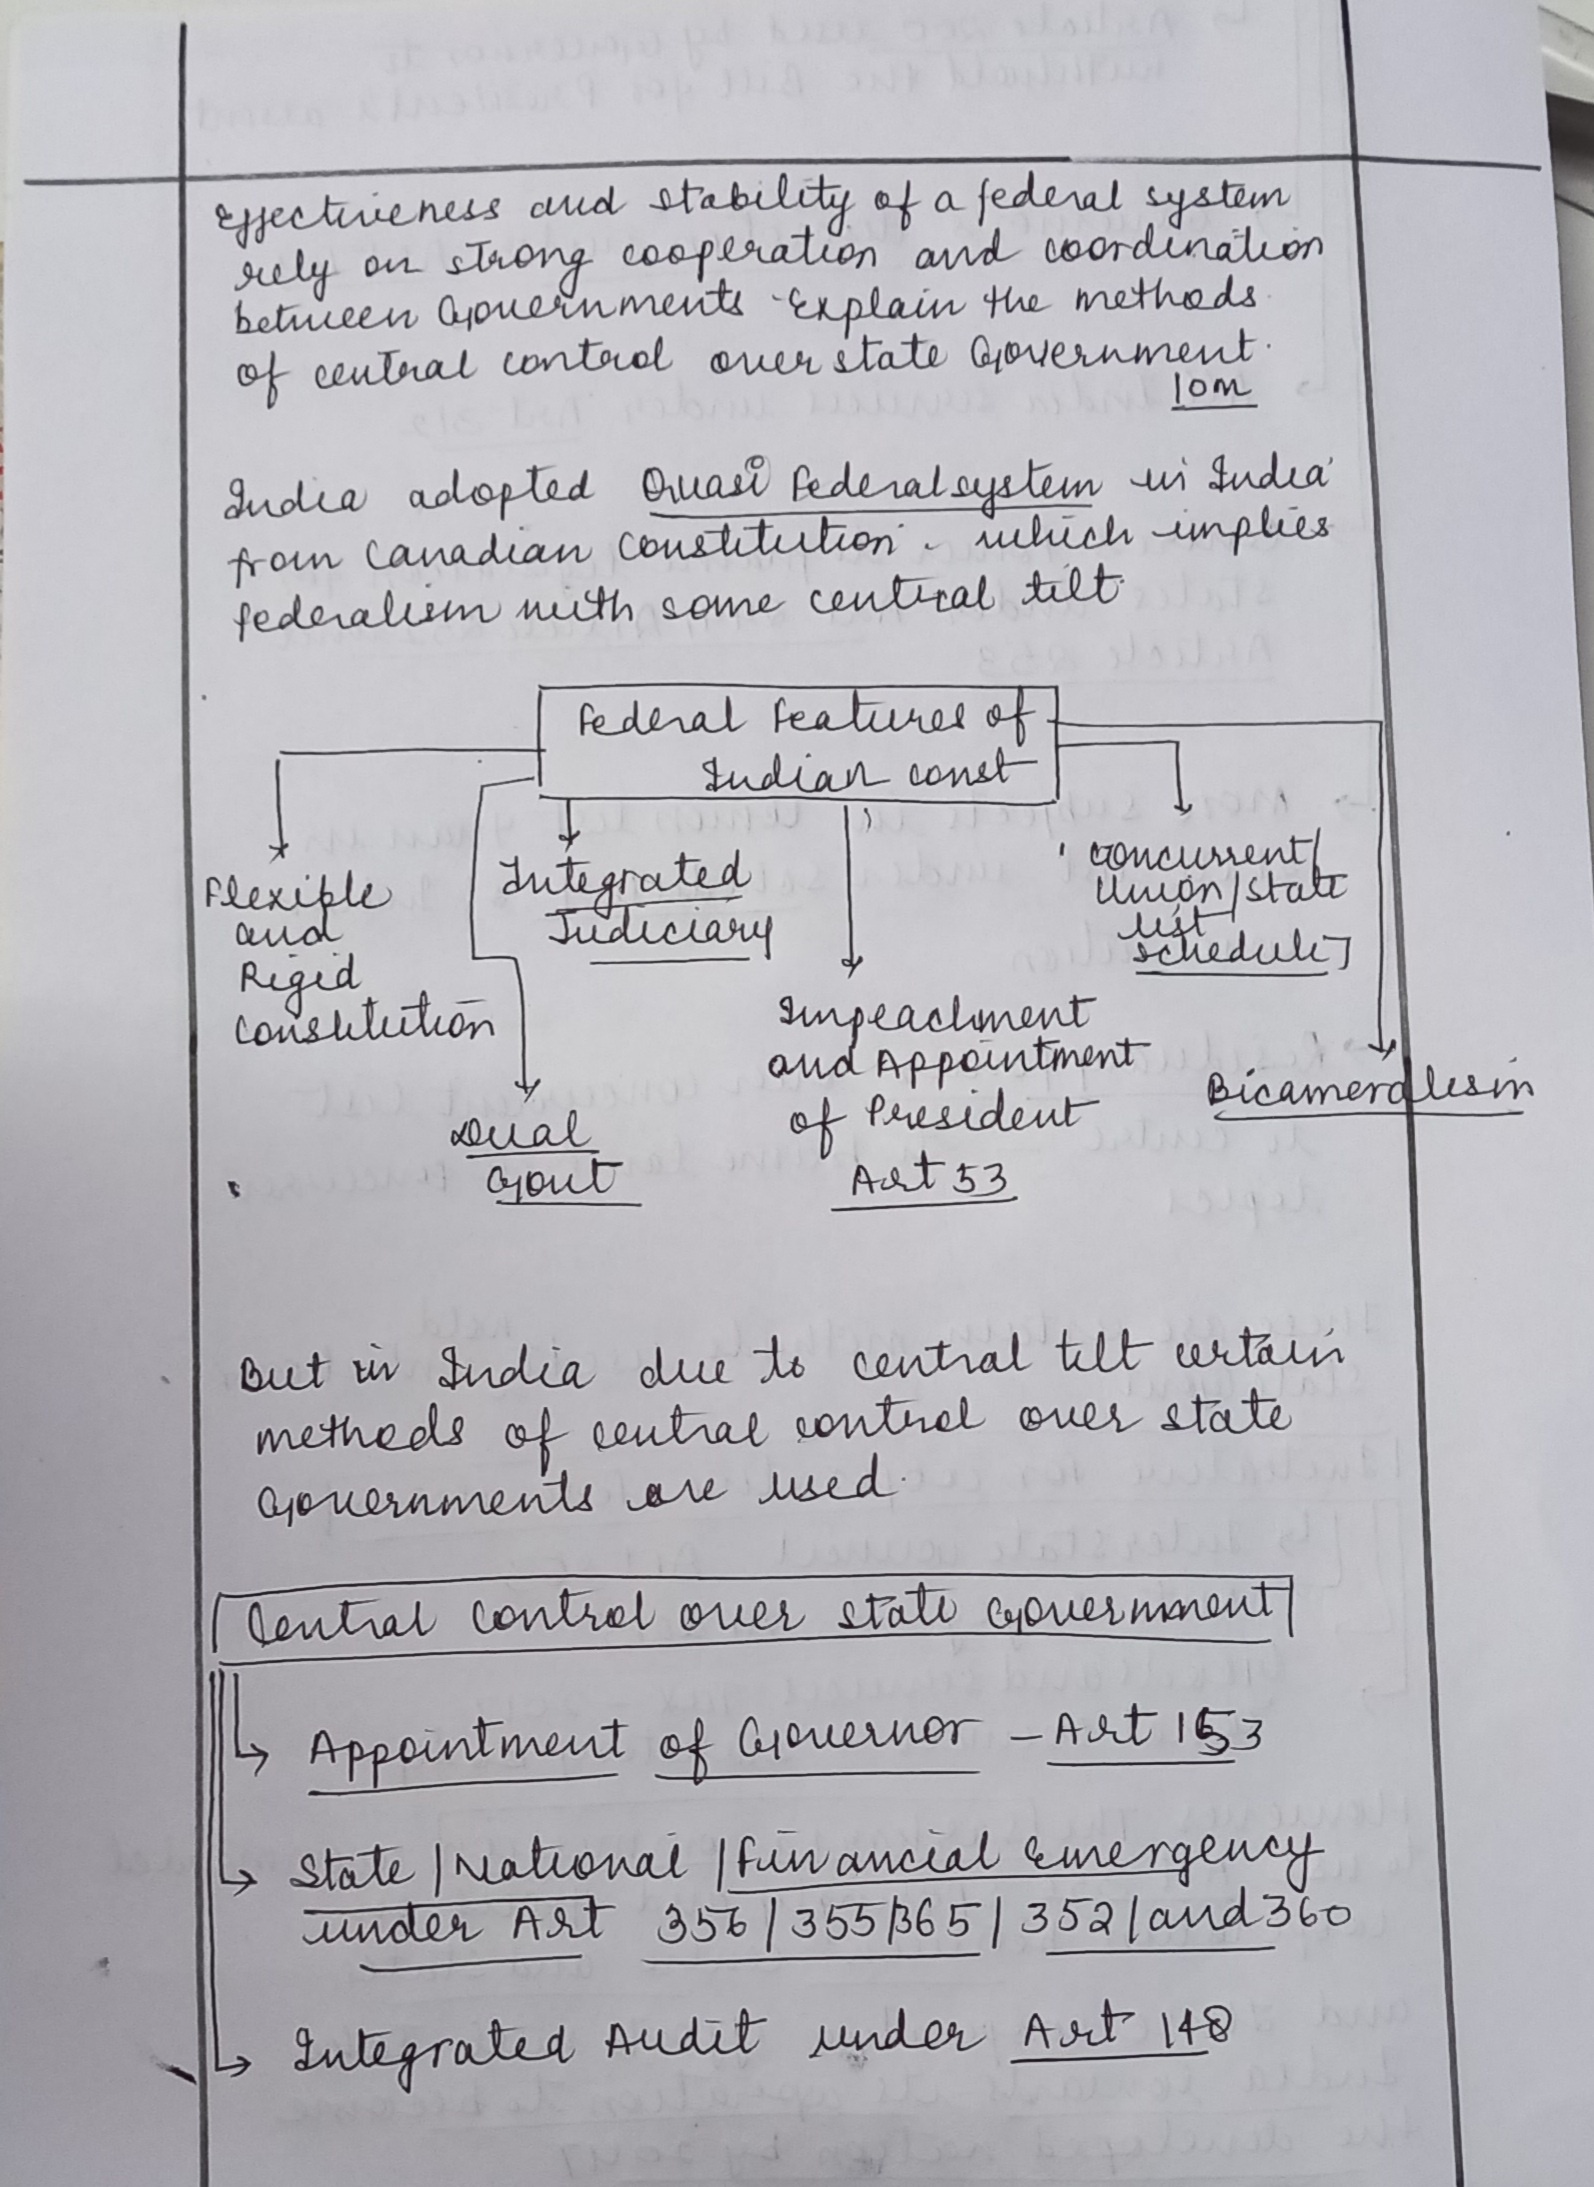 Effectiveness and stability of a federal system
rely on strong cooperation and coordination
between Governments. Explain the methods
of central control over state Government.
10m
India adopted Quasi Federal system in India
from Canadian Constitution. which implies
federalism with some central tilt.
Federal Features of
Indian const
Flexible
and
Rigid
Constitution
Dual
Govt
Integrated
Judiciary
Impeachment
and Appointment
of President
Art 53
Concurrent/
Union/State
list
schedule 7
Bicameralism
But in India due to central tilt certain
methods of central control over state
Governments are used.
Central control over state Government
↳ Appointment of Governor - Art 153
↳ State / National / Financial Emergency
under Art 356 / 355/365 / 352 / and 360
↳ Integrated Audit under Art 148